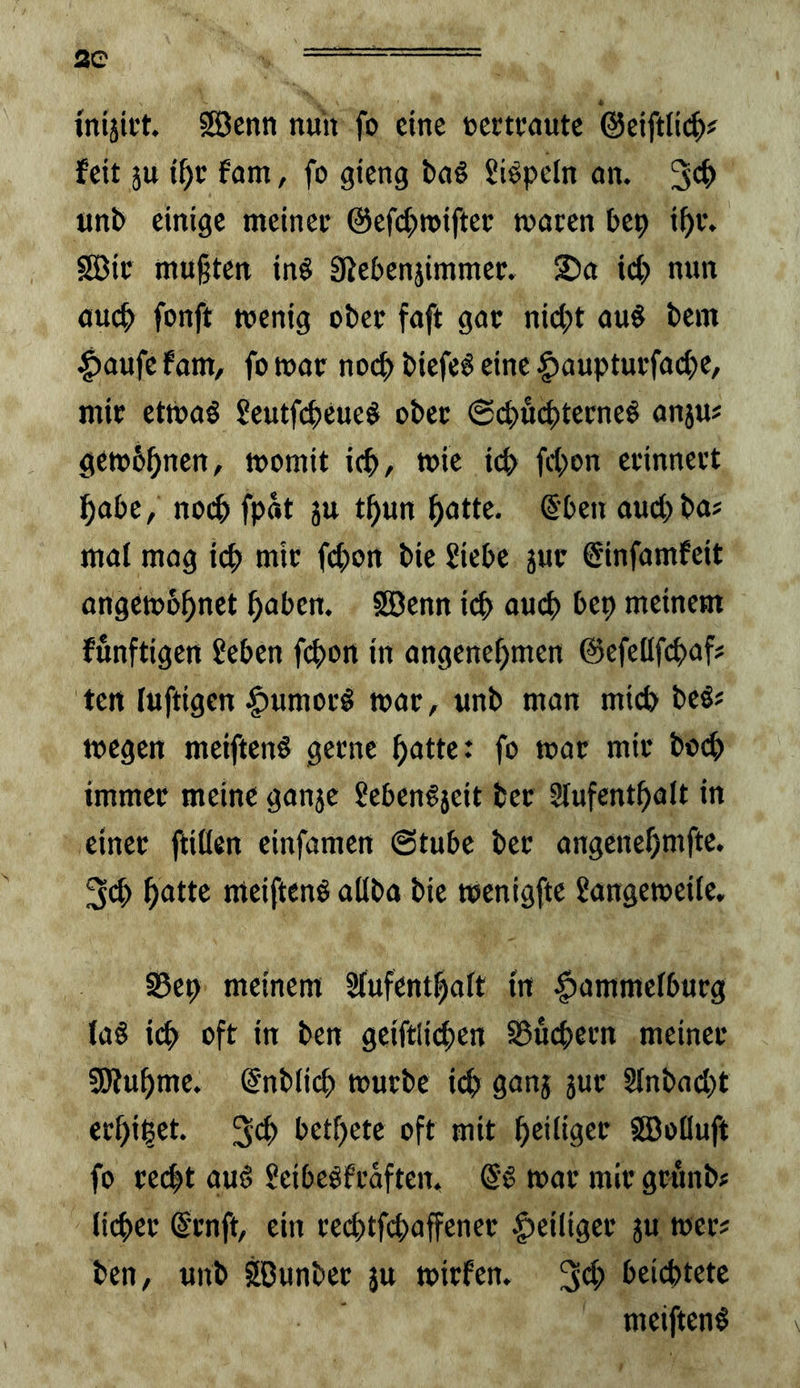 20
inizirt. Wenn nun so eine vertraute Geistlich-
keit zu ihr kam, so gieng das Lispeln an. Ich
und einige meiner Geschwister waren bey ihr.
Wir mußten ins Nebenzimmer. Da ich nun
auch sonst wenig oder fast gar nicht aus dem
Hause kam, so war noch dieses eine Haupturfache,
mir etwas Leutscheues oder Schüchternes anzu-
gewöhnen, womit ich, wie ich schon erinnert
habe, noch spät zu thun hatte. Eben auch da-
mal mag ich mir schon die Liebe zur Einsamkeit
angewöhnet haben. Wenn ich auch bey meinem
künftigen Leben schon in angenehmen Gesellschaf-
ten lustigen Humors war, und man mich des-
wegen meistens gerne hatte: so war mir doch
immer meine ganze Lebenszeit der Aufenthalt in
einer stillen einsamen Stube der angenehmste.
Ich hatte meistens allda die wenigste Langeweile.
Bey meinem Aufenthalt in Hammelburg
las ich oft in den geistlichen Büchern meiner
Muhme. Endlich wurde ich ganz zur Andacht
erhitzet. Ich bethete oft mit heiliger Wollust
so recht aus Leibeskräften. Es war mir gründ-
licher Ernst, ein rechtschaffener Heiliger zu wer-
den, und Wunder zu wirken. Ich beichtete
meistens